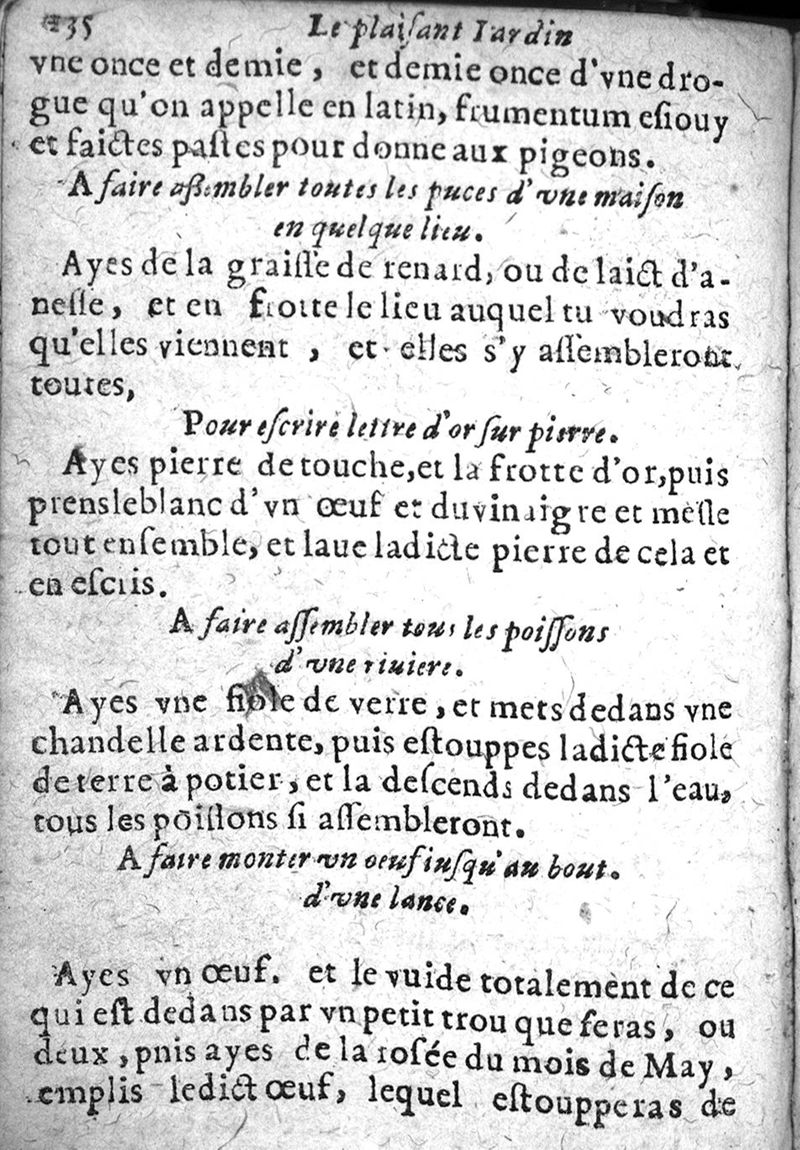 35 Le plaiſant Iardin
vne once et demie, et demie once d'vne dro-
gue qu'on appelle en latin, frumentum eſiouy
et faictes paſtes pour donne aux pigeons.
A faire aſſembler toutes les puces d'vne maiſon
en quelque lieu.
Ayes de la graiſſe de renard, ou de laict d'a-
neſſe, et en frotte le lieu auquel tu voudras
qu'elles viennent, et elles s'y aſſembleront
toutes,
Pour eſcrire lettre d'or ſur pierre.
Ayes pierre de touche, et la frotte d'or, puis
prens le blanc d'vn œuf et du vinaigre et meſle
tout enſemble, et laue ladicte pierre de cela et
en eſcris.
A faire aſſembler tous les poiſſons
d'vne riuiere.
Ayes vne fiole de verre, et mets dedans vne
chandelle ardente, puis eſtouppes ladicte fiole
de terre à potier, et la deſcends dedans l'eau,
tous les poiſſons ſi aſſembleront.
A faire monter vn oeuf iuſqu'au bout.
d'vne lance.
Ayes vn œuf. et le vuide totalement de ce
qui eſt dedans par vn petit trou que feras, ou
deux, pnis ayes de la roſée du mois de May,
emplis ledict œuf, lequel eſtoupperas de